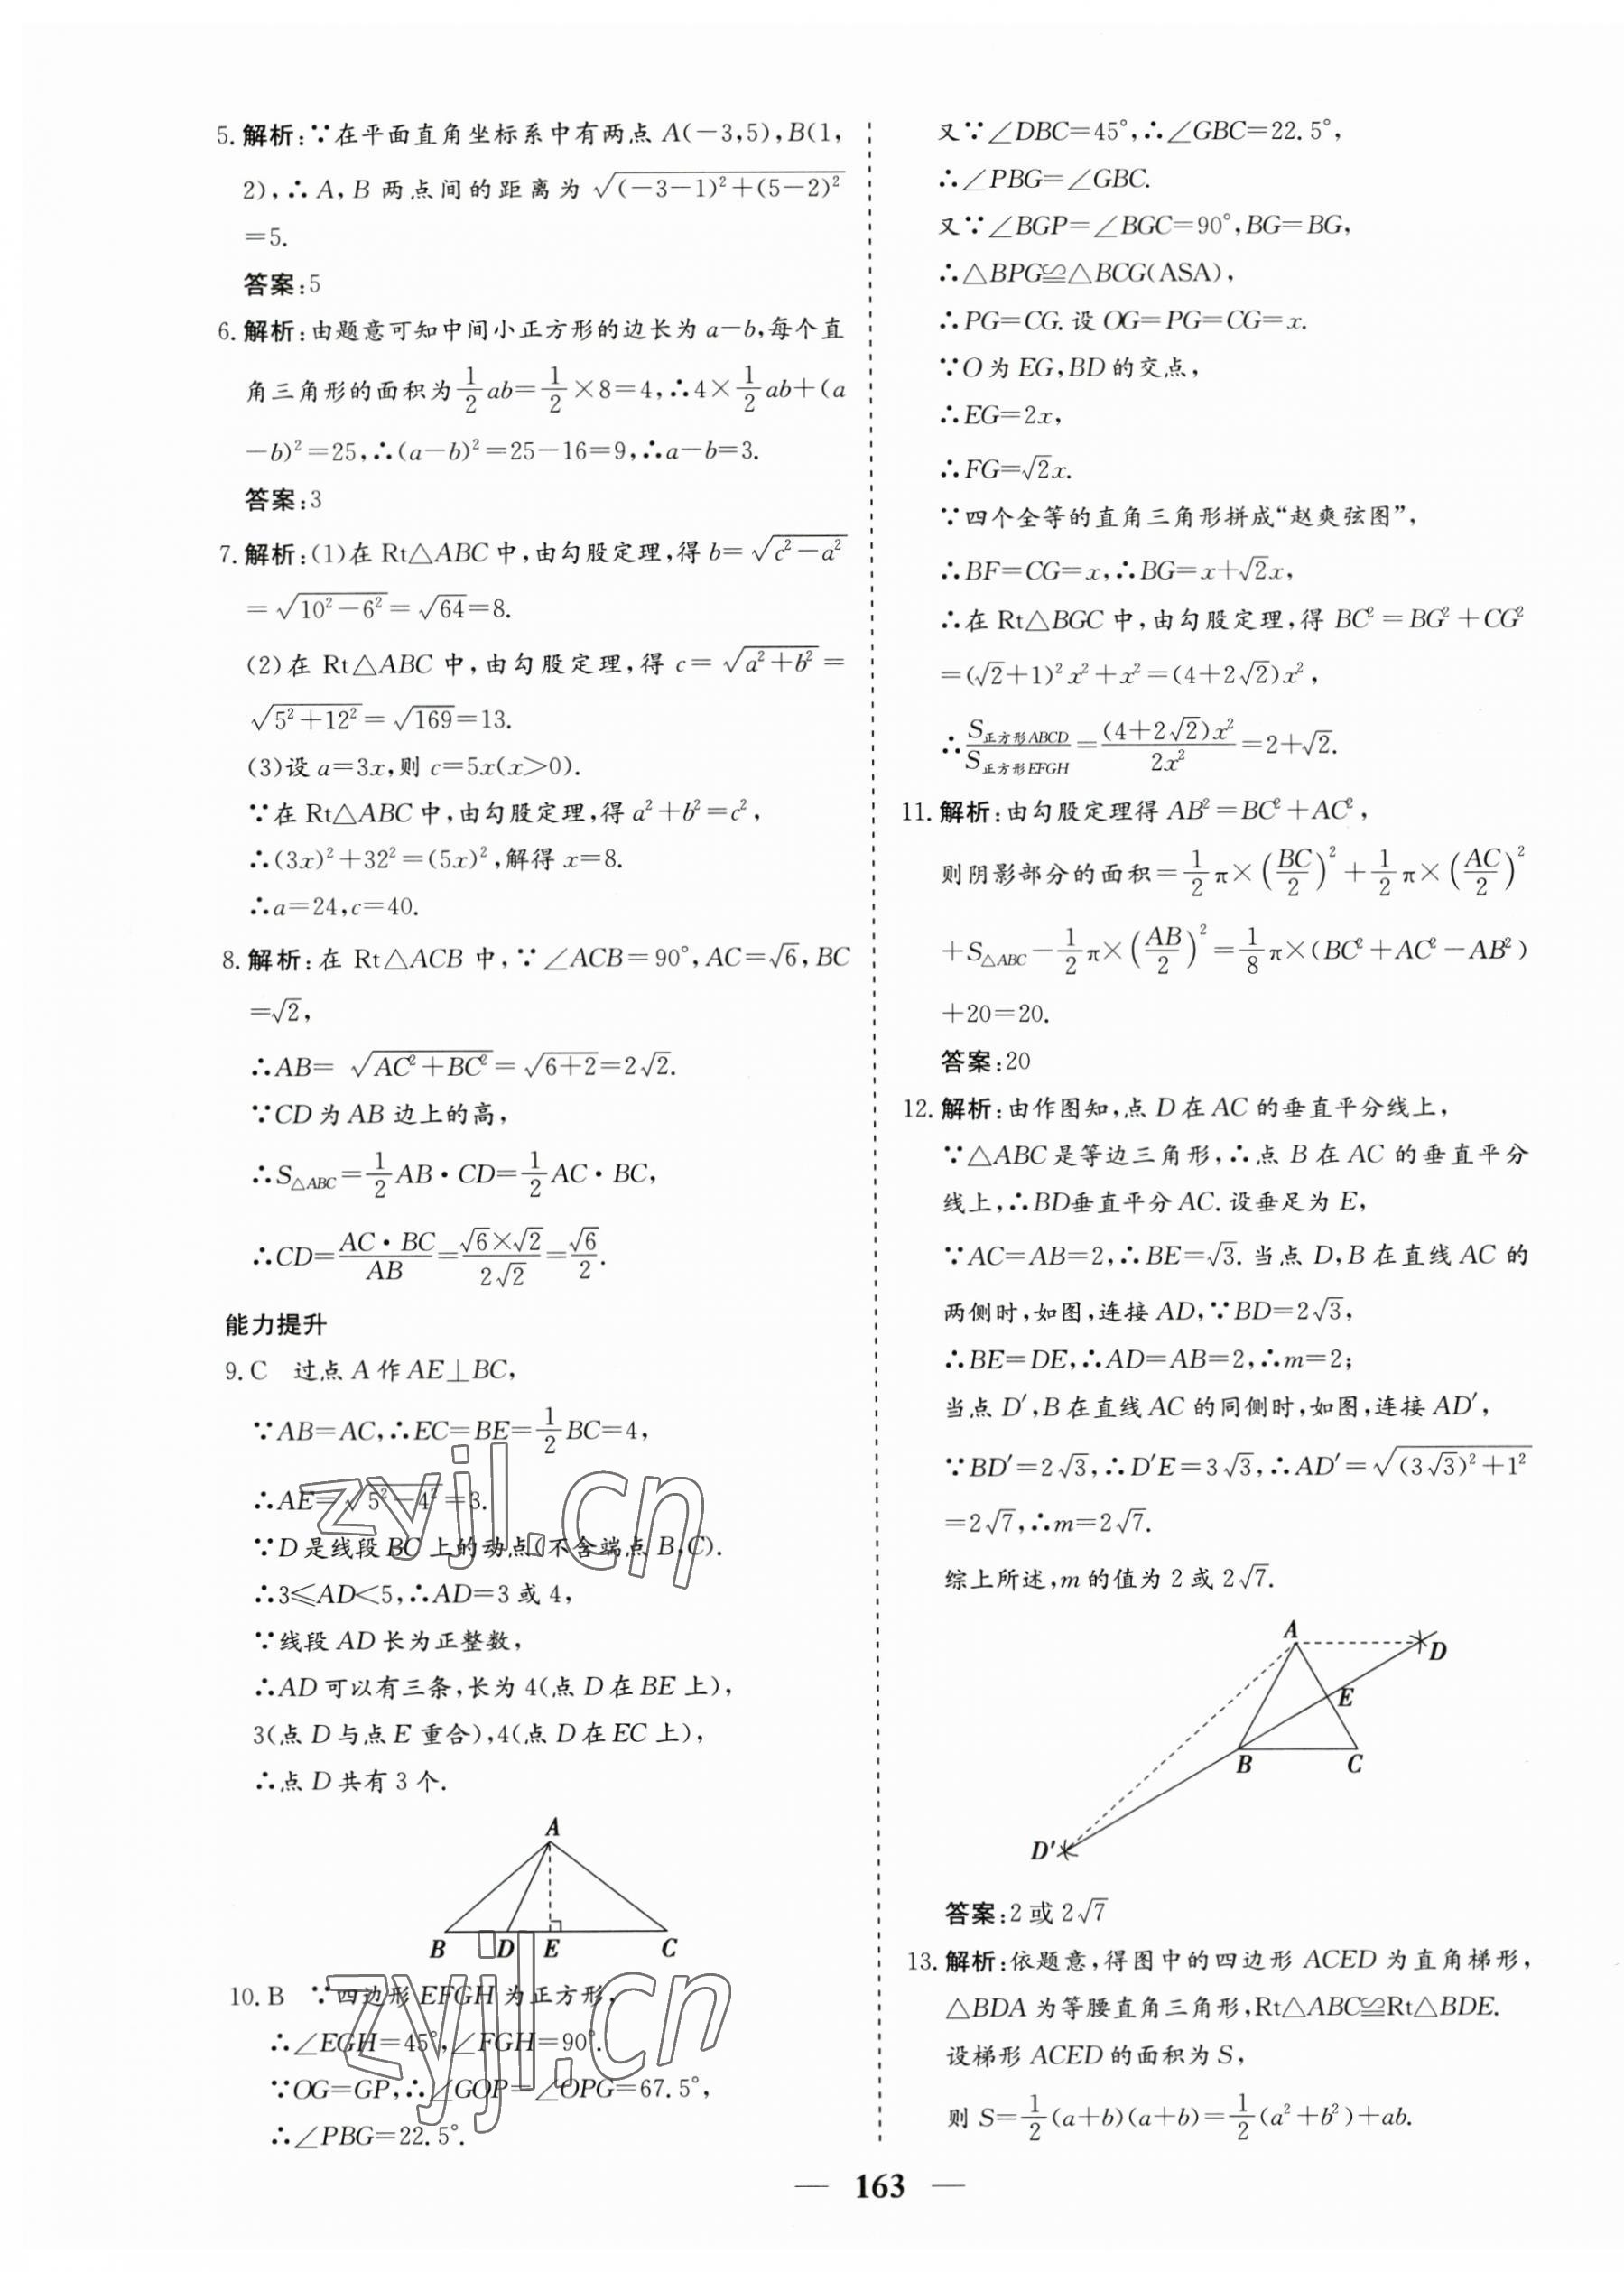 5. 解析:∵在平面直角坐标系中有两点 A(-3,5),B(1,
2),∴A,B 两点间的距离为 √((-3-1)²+(5-2)²)
=5.
答案:5
6. 解析:由题意可知中间小正方形的边长为 a-b,每个直
角三角形的面积为 1/2 ab=1/2×8=4,∴4×1/2 ab+(a
-b)²=25,∴(a-b)²=25-16=9,∴a-b=3.
答案:3
7. 解析:(1)在 Rt△ABC 中,由勾股定理,得 b=√(c²-a²)
=√(10²-6²)=√64=8.
(2)在 Rt△ABC 中,由勾股定理,得 c=√(a²+b²)=
√(5²+12²)=√169=13.
(3)设 a=3x,则 c=5x(x>0).
∵在 Rt△ABC 中,由勾股定理,得 a²+b²=c²,
∴(3x)²+32²=(5x)²,解得 x=8.
∴a=24,c=40.
8. 解析:在 Rt△ACB 中,∵∠ACB=90°,AC=√6,BC
=√2,
∴AB=√(AC²+BC²)=√(6+2)=2√2.
∵CD 为 AB 边上的高,
∴S△ABC=1/2 AB·CD=1/2 AC·BC,
∴CD=(AC·BC)/AB=(√6×√2)/(2√2)=√6/2.
能力提升
9. C 过点 A 作 AE⊥BC,
∵AB=AC,∴EC=BE=1/2 BC=4,
∴AE=√(5²-4²)=3.
∵D 是线段 BC 上的动点(不含端点 B,C).
∴3≤AD<5,∴AD=3 或 4,
∵线段 AD 长为正整数,
∴AD 可以有三条,长为 4(点 D 在 BE 上),
3(点 D 与点 E 重合),4(点 D 在 EC 上),
∴点 D 共有 3 个.
A
B D E C
10. B ∵四边形 EFGH 为正方形,
∴∠EGH=45°,∠FGH=90°.
∵OG=GP,∴∠GOP=∠OPG=67.5°,
∴∠PBG=22.5°.
又∵∠DBC=45°,∴∠GBC=22.5°,
∴∠PBG=∠GBC.
又∵∠BGP=∠BGC=90°,BG=BG,
∴△BPG≌△BCG(ASA),
∴PG=CG. 设 OG=PG=CG=x.
∵O 为 EG,BD 的交点,
∴EG=2x,
∴FG=√2x.
∵四个全等的直角三角形拼成“赵爽弦图”,
∴BF=CG=x,∴BG=x+√2x,
∴在 Rt△BGC 中,由勾股定理,得 BC²=BG²+CG²
=(√2+1)²x²+x²=(4+2√2)x²,
∴S正方形ABCD/S正方形EFGH=(4+2√2)x²/2x²=2+√2.
11. 解析:由勾股定理得 AB²=BC²+AC²,
则阴影部分的面积=1/2π×(BC/2)²+1/2π×(AC/2)²
+S△ABC-1/2π×(AB/2)²=1/8π×(BC²+AC²-AB²)
+20=20.
答案:20
12. 解析:由作图知,点 D 在 AC 的垂直平分线上,
∵△ABC 是等边三角形,∴点 B 在 AC 的垂直平分
线上,∴BD垂直平分 AC. 设垂足为 E,
∵AC=AB=2,∴BE=√3. 当点 D,B 在直线 AC 的
两侧时,如图,连接 AD,∵BD=2√3,
∴BE=DE,∴AD=AB=2,∴m=2;
当点 D′,B 在直线 AC 的同侧时,如图,连接 AD′,
∵BD′=2√3,∴D′E=3√3,∴AD′=√((3√3)²+1²)
=2√7,∴m=2√7.
综上所述,m 的值为 2 或 2√7.
A
D
E
B C
D′
答案:2 或 2√7
13. 解析:依题意,得图中的四边形 ACED 为直角梯形,
△BDA 为等腰直角三角形,Rt△ABC≌Rt△BDE.
设梯形 ACED 的面积为 S,
则 S=1/2(a+b)(a+b)=1/2(a²+b²)+ab.
— 163 —
zyjl.cn
zyjl.cn